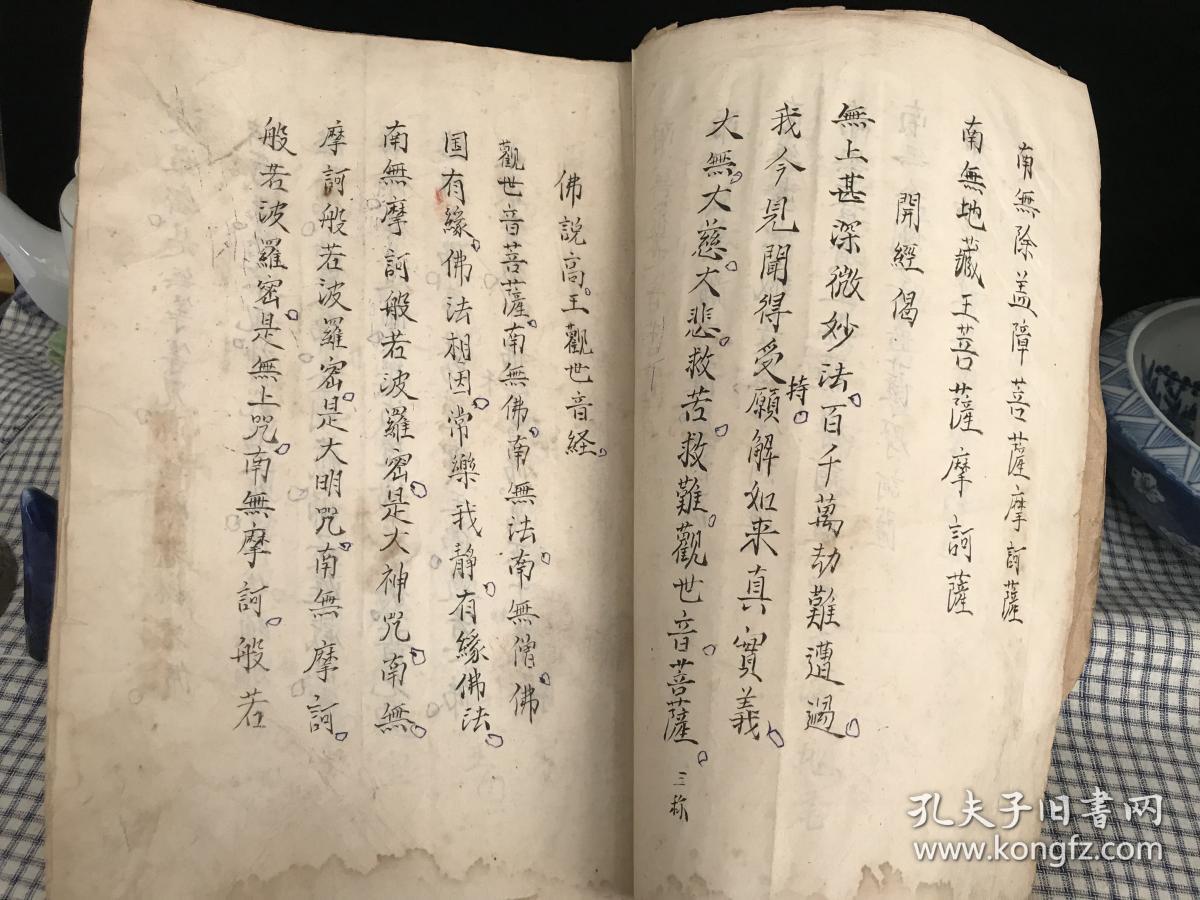 南無除盖障菩薩摩訶薩
南無地藏王菩薩摩訶薩
開經偈
無上甚深微妙法。百千萬劫難遭遇。
我今見聞得受持。願解如来真實義。
大無。大慈。大悲救苦。救難。觀世音。菩薩。三称
佛說高。王觀世音経。
觀世音菩薩。南無佛。南無法。南無僧。佛
国有緣。佛法相因。常樂我静。有緣佛法。
南無摩訶般若波羅密。是大神咒。南無。
摩訶般若波羅密。是大明咒。南無摩訶。
般若波羅密。是無上咒。南無摩訶。般若
孔夫子旧书网
www.kongfz.com